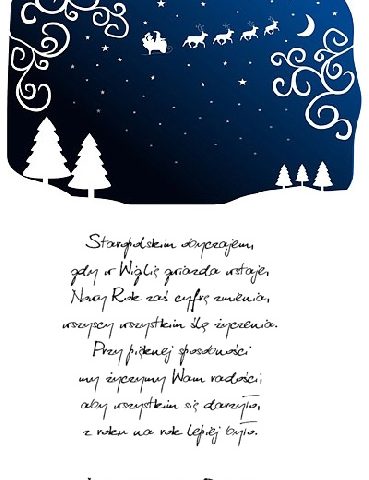 Staropolskim obyczajem,
gdy w Wigilię gwiazda wstaje,
Nowy Rok zaś cyfrę zmienia,
wszyscy wszystkim ślą życzenia.
Przy pięknej sposobności
my życzymy Wam radości
aby wszystkim się darzyło,
z roku na rok lepiej było.